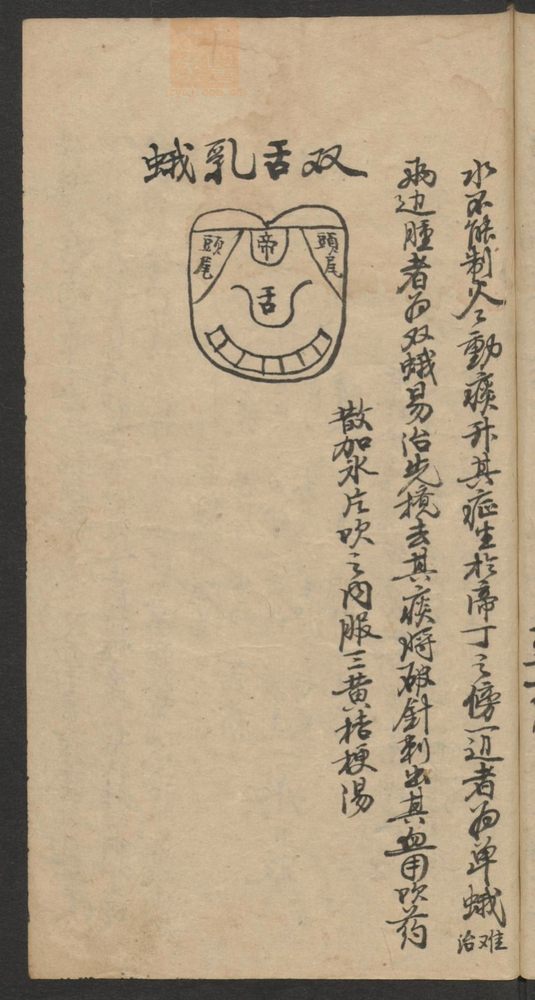 水不能制火々動痰升其症生於啼丁之傍一边者为单蛾难治
两边腫者为双蛾易治先搅去其痰将破針刺出其血用吹药
散加氷片吹之内服三黄桔梗湯
双舌乳蛾
頭尾
帝
頭尾
舌